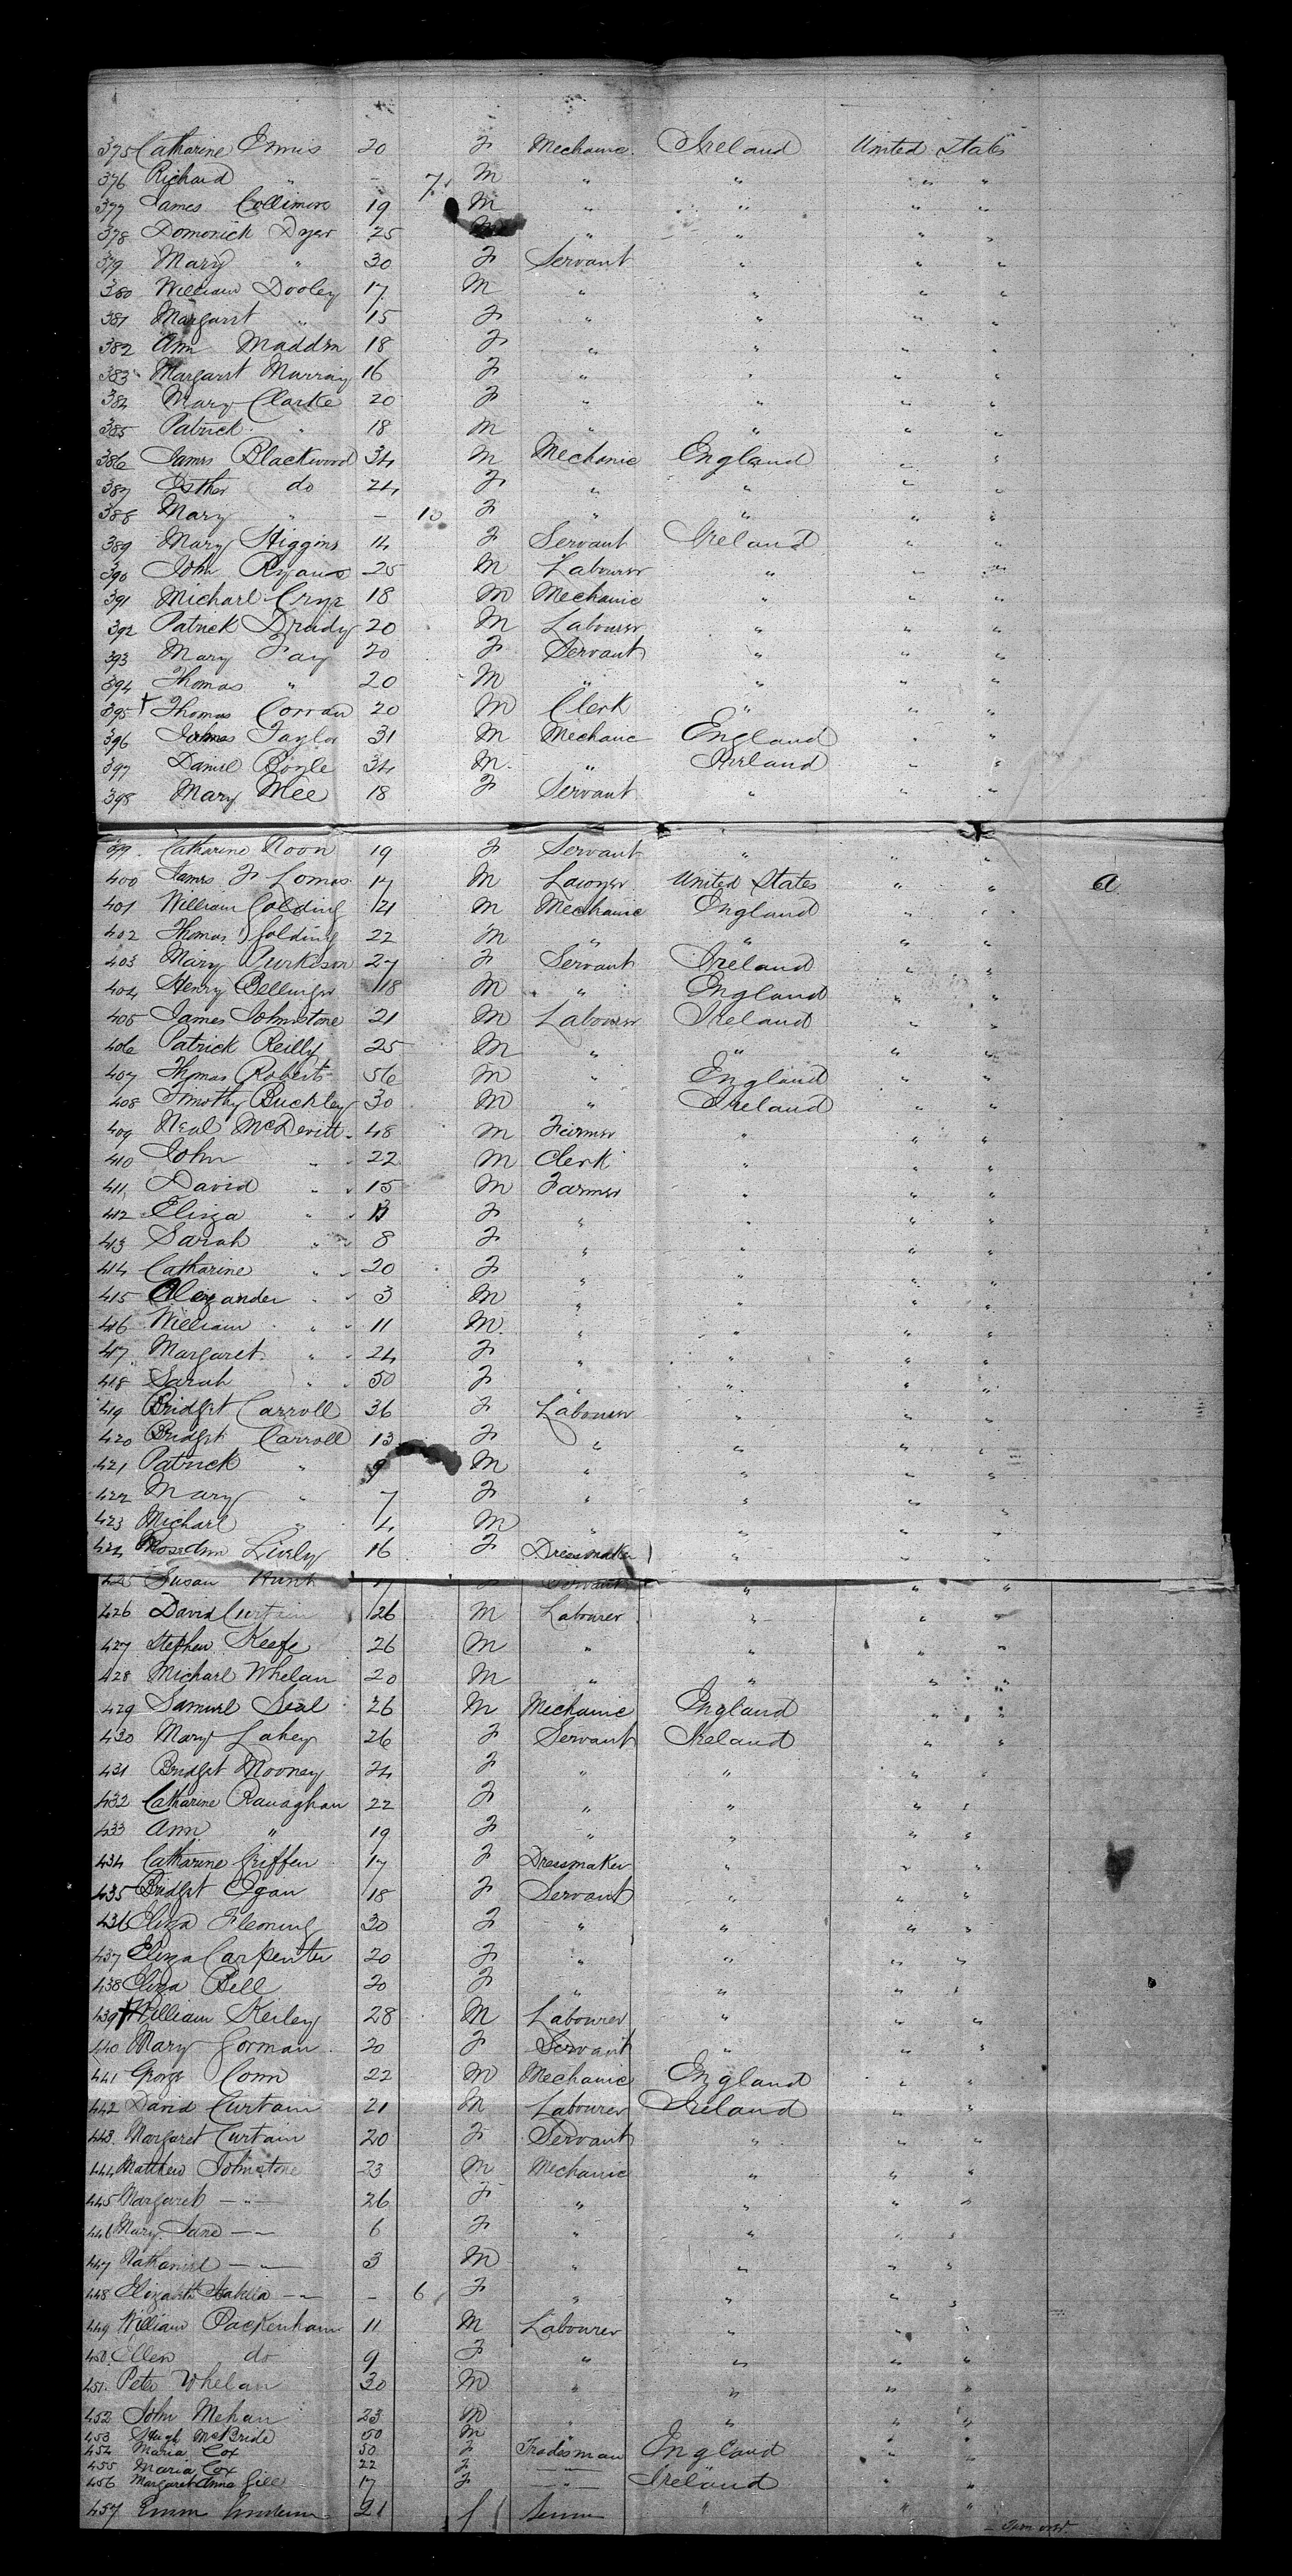 375 Catharine Ennis 20 F Mechanic Ireland United States
376 Richard " - 7 M " " " "
377 James Collimore 19 M " " " "
378 Domonick Dyer 25 M " " " "
379 Mary " 30 F Servant " " "
380 William Dooley 17 M " " " "
381 Margaret " 15 F " " " "
382 Ann Madden 18 F " " " "
383 Margaret Murray 16 F " " " "
384 Mary Clarke 20 F " " " "
385 Patrick " 18 M " " " "
386 James Blackwood 34 M Mechanic England " "
387 Esther do 24 F " " " "
388 Mary " - 10 F " " " "
389 Mary Higgins 14 F Servant Ireland " "
390 John Ryans 25 M Labourer " " "
391 Michael 18 M Mechanic " " "
392 Patrick Brady 20 M Labourer " " "
393 Mary Fay 20 F Servant " " "
394 Thomas " 20 M " " " "
395 + Thomas Corran 20 M Clerk " " "
396 Taylor 31 M Mechanic England " "
397 Daniel Boyle 34 M " Ireland " "
398 Mary Mee 18 F Servant " " "
399 Catharine Noon 19 F Servant " " "
400 James F Lomas 17 M Lawyer United States " " a
401 William Golding 21 M Mechanic England " "
402 Thomas Golding 22 M " " " "
403 Mary Purkison 27 F Servant Ireland " "
404 Henry Bellinger 18 M " England " "
405 James Johnstone 21 M Labourer Ireland " "
406 Patrick Reilly 25 M " " " "
407 Thomas Roberts 56 M " England " "
408 Timothy Buckley 30 M " Ireland " "
409 Neal McDevitt 48 M Farmer " " "
410 John " " 22 M Clerk " " "
411 David " " 15 M Farmer " " "
412 Eliza " " 13 F " " " "
413 Sarah " " 8 F " " " "
414 Catharine " " 20 F " " " "
415 Alexander " " 3 M " " " "
416 William " " 11 M " " " "
417 Margaret " " 24 F " " " "
418 Sarah " " 50 F " " " "
419 Bridget Carroll 36 F Labourer " " "
420 Bridget Carroll 13 F " " " "
421 Patrick " 9 M " " " "
422 Mary " 7 F " " " "
423 Michael " 4 M " " " "
424 RoseAnn Lively 16 F Dressmaker " " "
425 Susan Hunt 17 F Servant " " "
426 David Curtain 26 M Labourer " " "
427 Stephen Keefe 26 M " " " "
428 Michael Whelan 20 M " " " "
429 Samuel Seal 26 M Mechanic England " "
430 Mary Lahey 26 F Servant Ireland " "
431 Bridget Mooney 24 F " " " "
432 Catharine Ranaghan 22 F " " " "
433 Ann " 19 F " " " "
434 Catharine Griffen 17 F Dressmaker " " "
435 Bridget Egan 18 F Servant " " "
436 Eliza Fleming 30 F " " " "
437 Eliza Carpenter 20 F " " " "
438 Eliza Bell 20 F " " " "
439 + William Keiley 28 M Labourer " " "
440 Mary Gorman 20 F Servant " " "
441 George Conn 22 M Mechanic England " "
442 David Curtain 21 M Labourer Ireland " "
443 Margaret Curtain 20 F Servant " " "
444 Matthew Johnstone 23 M Mechanic " " "
445 Margaret — " — 26 F " " " "
446 Mary Jane — " — 6 F " " " "
447 Nathaniel — " — 3 M " " " "
448 Elizabeth Isabella — " — - 6 F " " " "
449 William Packenham 11 M Labourer " " "
450 Ellen do 9 F " " " "
451 Peter Whelan 30 M " " " "
452 John Mehan 23 M " " " "
453 Hugh McBride 50 M " " " "
454 Maria Cox 50 F Tradesman England " "
455 Maria Cox 22 F — " — " "
456 Margaret Anna Gill 17 F — " — Ireland " "
457 21 f " " "